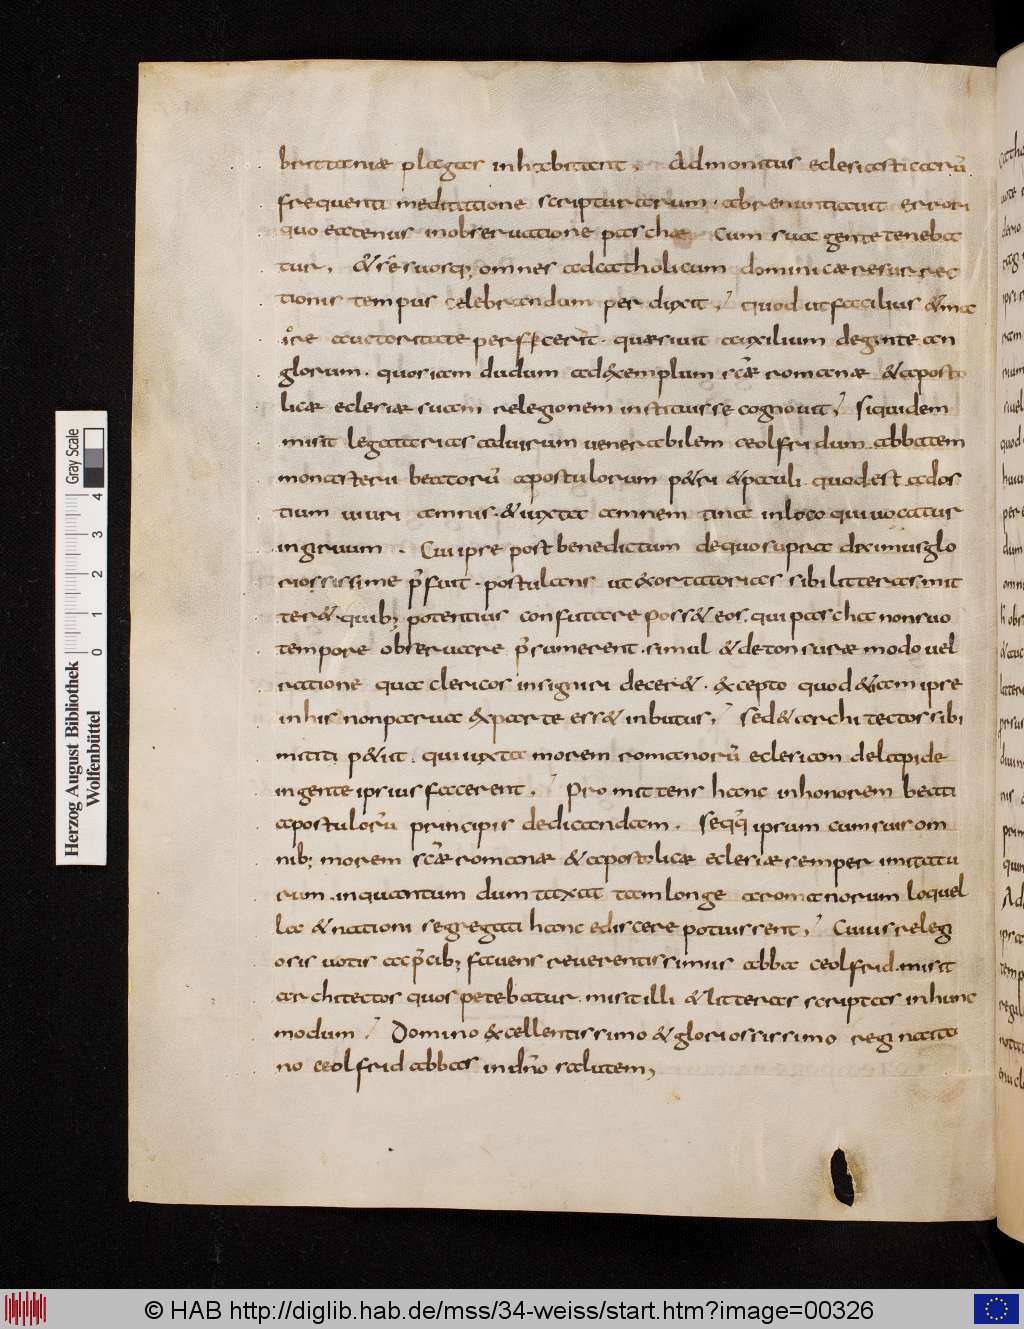 brittaniae plagas inhabitant, Admonitus eclesiasticarū
frequenti meditatione scripturarum . abrenuntiauit errori
quo eatenus inobseruatione paschae Cum sua gente teneba
tur, & se suosq; omnes ad catholicum dominicae resurrec
tionis tempus celebrandum perduxit, quod ut facilius & ma
iore auctoritate perficerit . quaesiuit auxilium de gente an
glorum . quos iam dudum ad exemplum scāe romanae & aposto
licae eclesiae suam relegionem instituisse cognouit, Siquidem
misit legatarios ad uirum uenerabilem ceolfridum abbatem
monasterii beatorū apostulorum p&ri & pauli quod est ad os
tium uiuri amnis . & iuxta amnem tina in loco qui uocatur
ingiruum . Cui ipse post benedictum de quo supra diximus glo
riossissime p̄fuit . postulans ut exortatorias sibi litteras mit
ter& quib; potentius confutare poss& eos . qui pascha non suo
tempore obseruare p̄sumerent . simul & de tonsurae modo uel
ratione qua clericos insigniri decer& . excepto quod &iam ipse
in his non parua ex parte ess& inbutus, Sed & architectos sibi
mitti p&iit . qui iuxta morem romanorū eclesian de lapide
in gente ipsius facerent, Promittens hanc in honorem beati
apostulorū principis dedicandam . Seq̄q ipsum cum suis om
nib; morem scāe romanae & apostolicae eclesiae semper imitatu
rum . inquantum dumtaxat tam longe a romanorum loquel
la & nationi segregati hanc ediscere potuissent, Cuius relegi
osis uotis ac p̄cib; fauens reuerentissimus abba ceolfrid . misit
architectos quos petebatur . misit illi & litteras scriptas in hunc
modum Domino excellentissimo & gloriossissimo regi naita
no ceolfrid abbas in dn̄o salutem,
Herzog August Bibliothek
Wolfenbüttel
0 1 2 3 4
Gray Scale
© HAB http://diglib.hab.de/mss/34-weiss/start.htm?image=00326